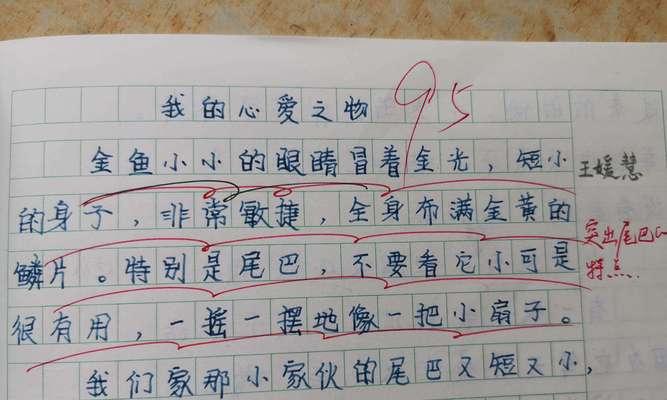 我的心爱之物
95
金鱼小小的眼睛冒着金光，短小
王媛慧
的身子，非常敏捷，全身布满金黄的
突出尾巴的
鳞片。特别是尾巴，不要看它小可是
特点
很有用，一摇一摆地像一把小扇子。
我们家那小家伙的尾巴又短又小，